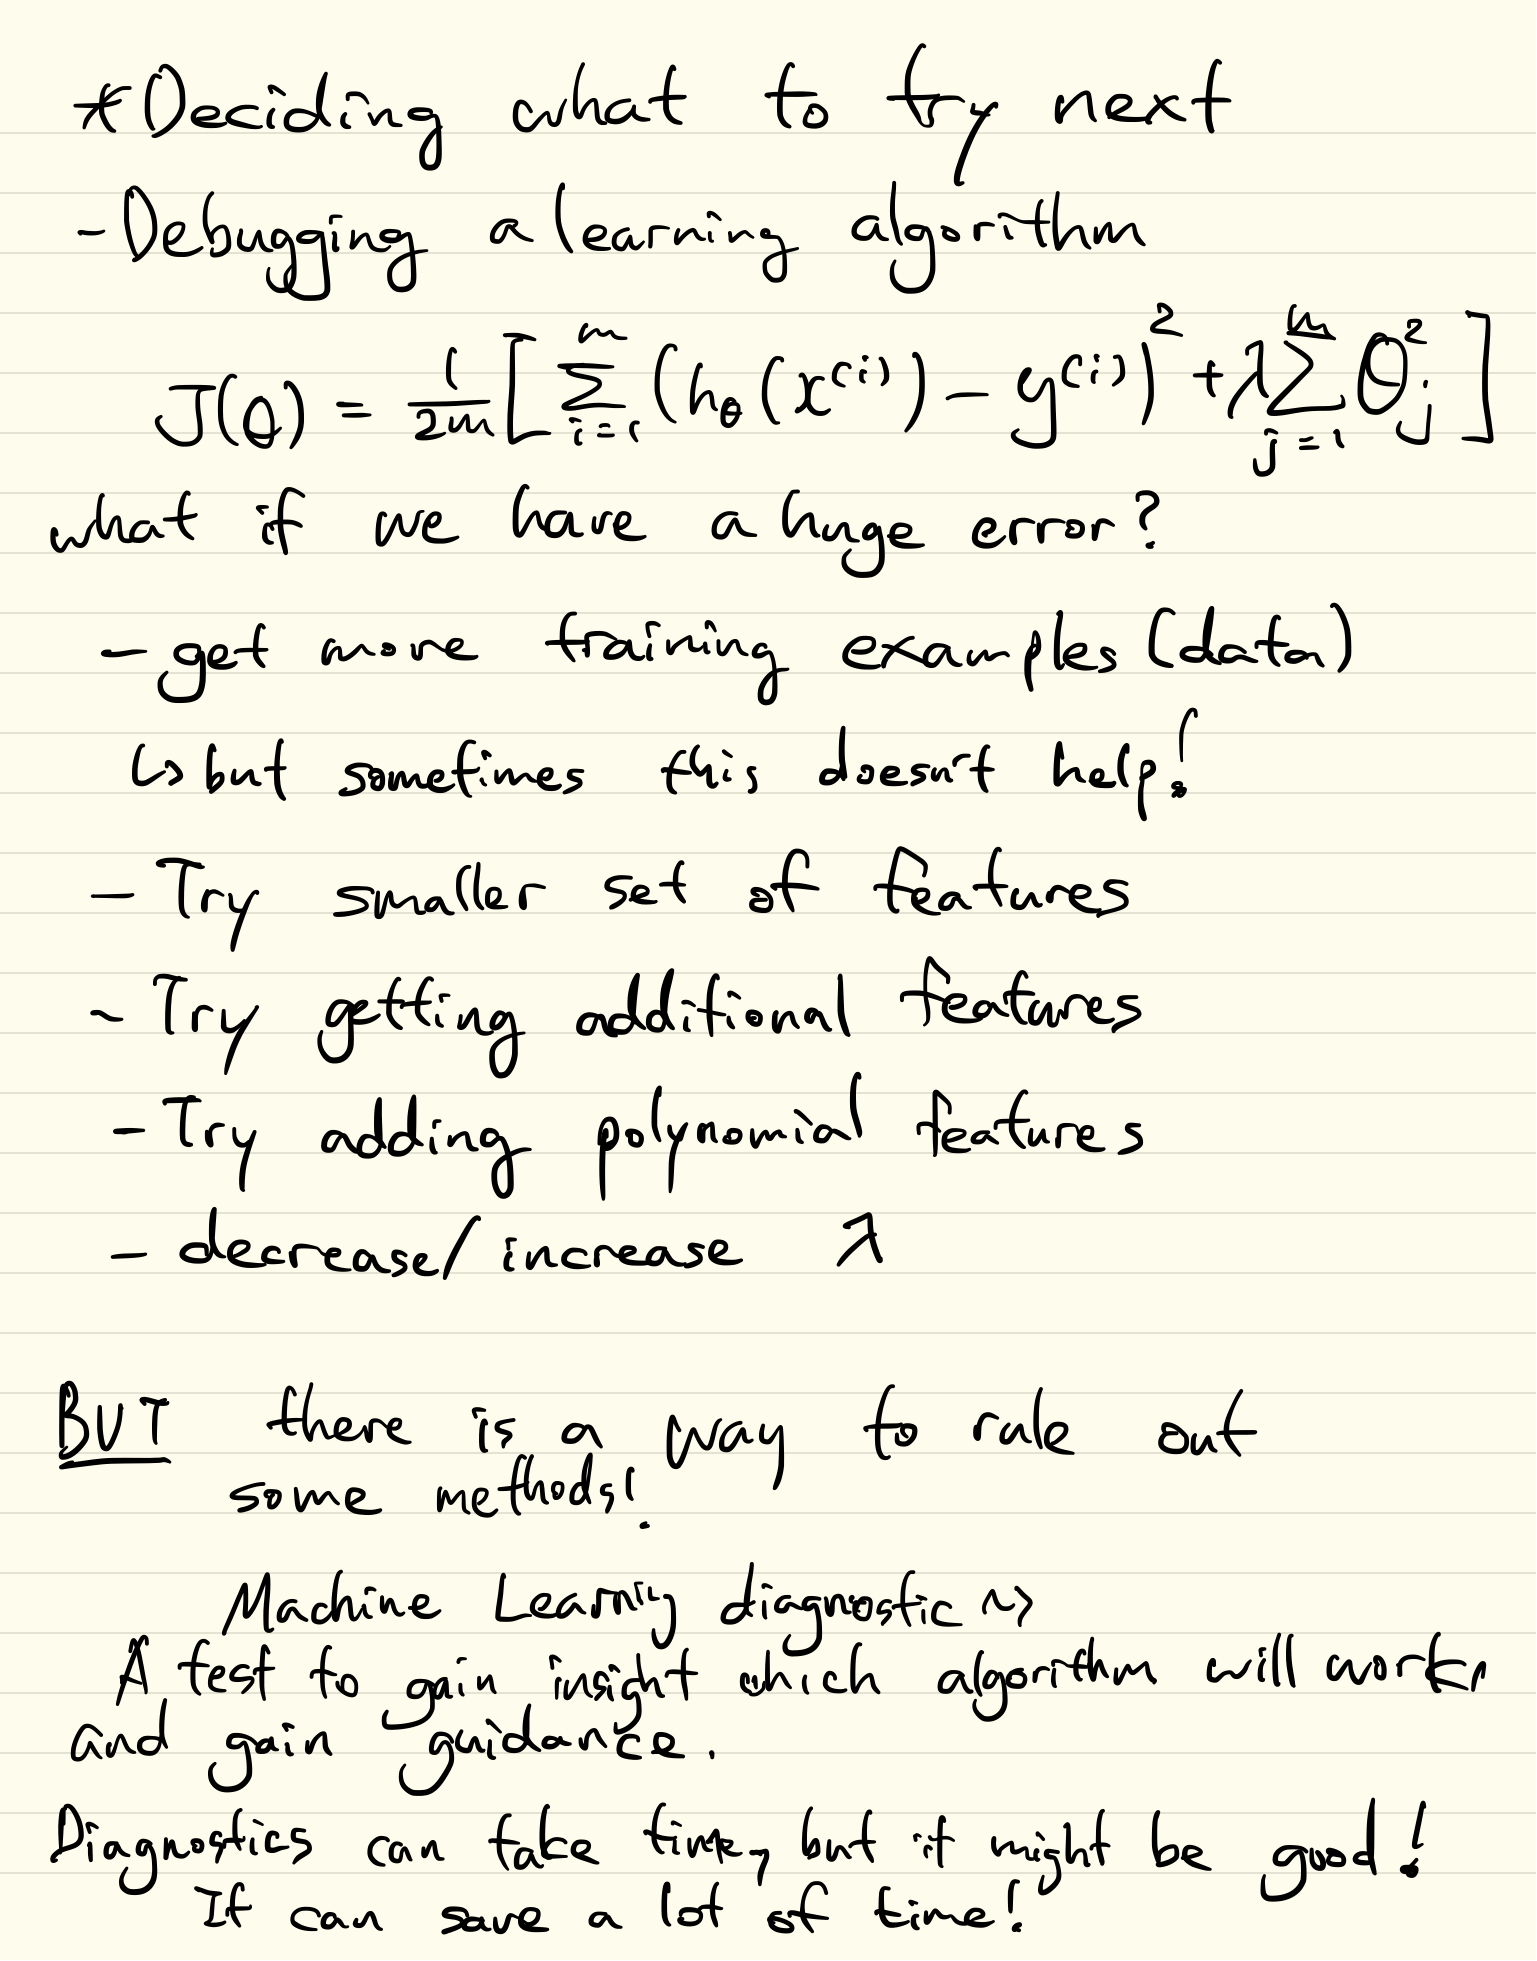 *Deciding what to try next
- Debugging a learning algorithm
J(θ) = 1/2m [ Σ_{i=1}^{m} (h_θ(x^{(i)}) - y^{(i)})^2 + λ Σ_{j=1}^{m} θ_j^2 ]
what if we have a huge error?
- get more training examples (data)
↳ but sometimes this doesn't help!
- Try smaller set of features
- Try getting additional features
- Try adding polynomial features
- decrease/increase λ
BUT there is a way to rule out
some methods!
Machine Learning diagnostic ~>
A test to gain insight which algorithm will work,
and gain guidance.
Diagnostics can take time, but it might be good!
It can save a lot of time!